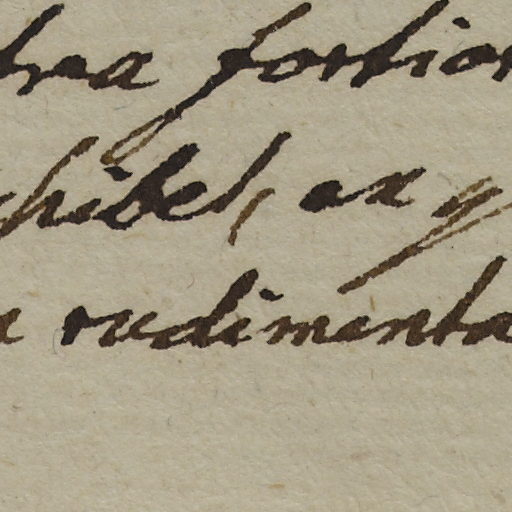 tra fortior
hibet, ex
rudimenta